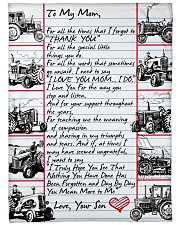 To My Mom,
For all the times that I forgot to
"THANK YOU"
For all the special little
things you do,
For all the words that sometimes
go unsaid, I need to say
I LOVE YOU MOM...I DO.
I Love You For the way you
stop and listen,
And for your support throughout
the years,
For teaching me the meaning
of compassion
and sharing in my triumphs
and tears. And if, at times I
may have seemed ungrateful,
I want to say
I Truly Hope You See That
Nothing You Have Done Has
Been Forgotten and Day By Day
You Mean More to Me"
Love, Your Son